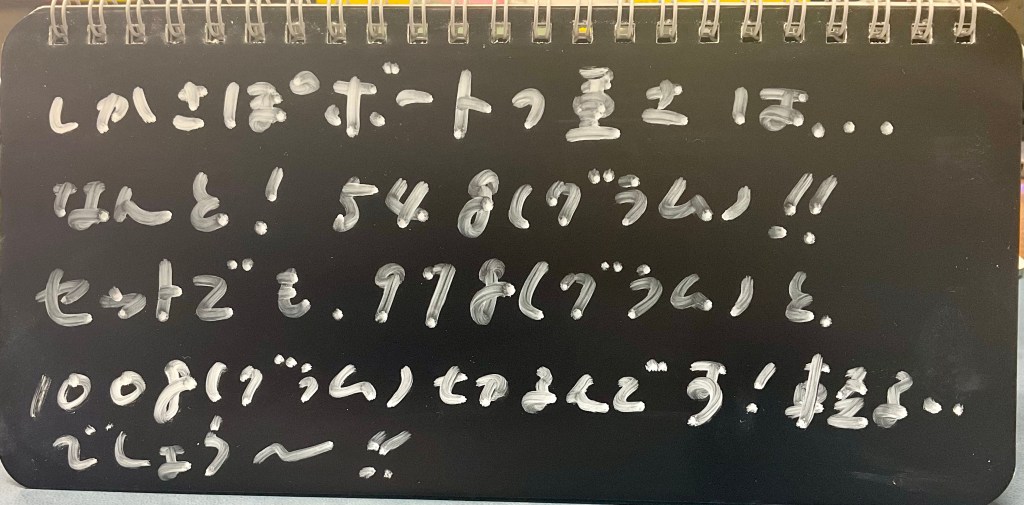 しかさぽボートの重さは...
なんと！54g(グラム)!!
セットでも、97g(グラム)と、
100g(グラム)せつまんです！軽る..
でしょう〜!!